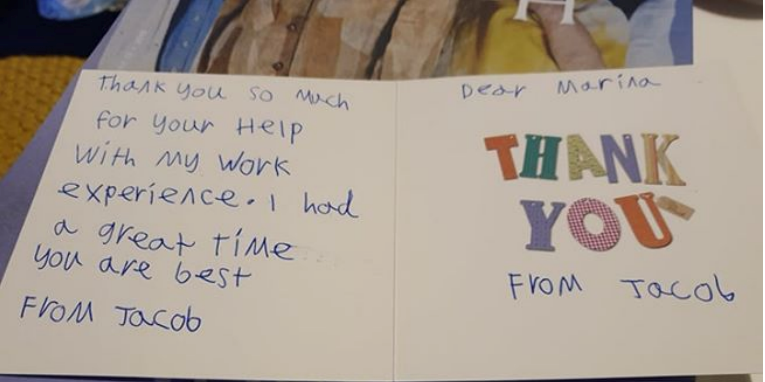 H
Thank you so much
for your Help
With My Work
experience. I had
a great time
you are best
From Jacob
Dear Marina
THANK
YOU
From Jacob